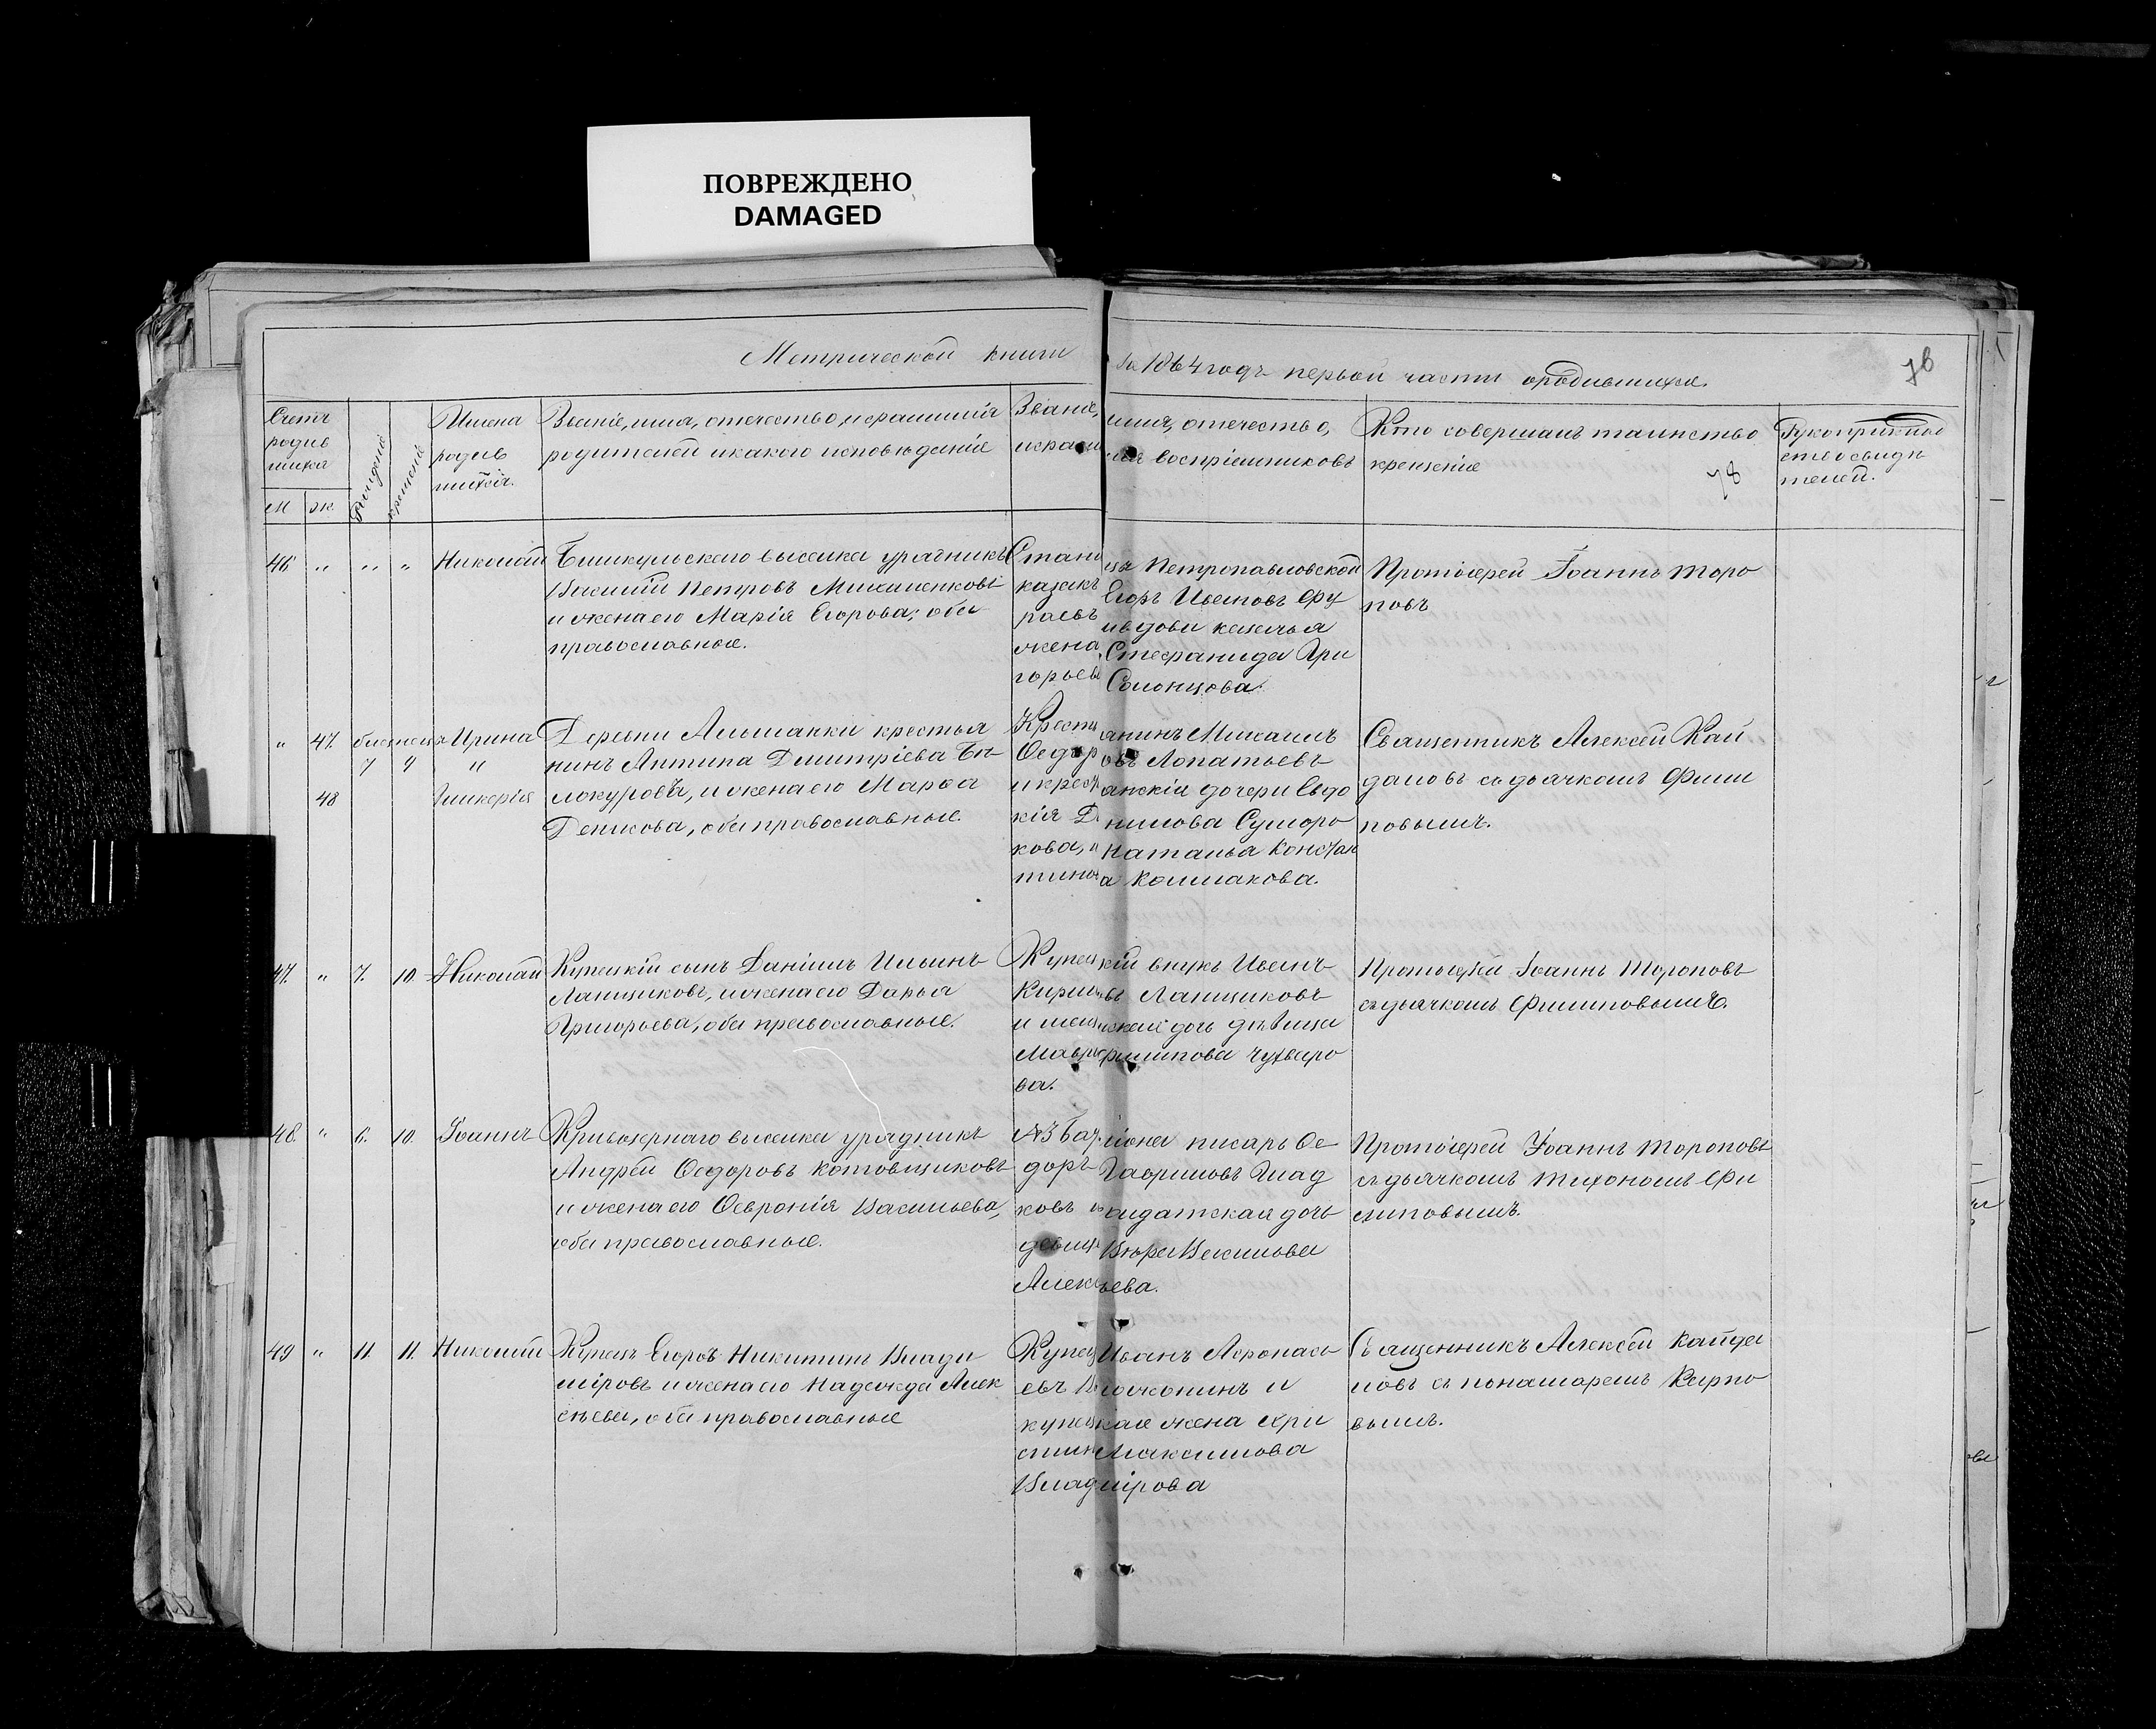 ПОВРЕЖДЕНО
DAMAGED
Метрической книги за 1864 годъ первой части о родившихся.
78
Счетъ родившихся
М
Ж
Рожденія
Крещенія
Имена родившихся.
Званіе, имя, отчество, и фамилія родителей и какого исповѣданія
Званіе, имя, отчество, и фамилія воспріемниковъ
Кто совершалъ таинство крещенія
78
Рукоприкладство свидѣтелей.
46. " " " Николай
Бишкульскаго выселка урядникъ
Василій Петровъ Михаиленковъ
и жена его Марія Егорова; оба
православные.
Станицы Петропавловской
казакъ Егоръ Ивановъ
жена Стефанида Гри
горьева Солонцова.
Протоіерей Іоаннъ Торо
повъ
" 47. близнецы Ирина
7 9 "
48 Гликерія
Деревни Альшанки крестья
нинъ Антипа Дмитріевъ Бѣ
локуровъ, и жена его Марѳа
Денисова, оба православные.
Крестьянинъ Михаилъ
Ѳедоровъ Лопатьевъ
и крестьянскія дочери Евдо
кія Данилова Суморо
кова, и Наталья Констан
тинова Колмакова.
Священникъ Алексѣй Кай
даловъ съ дьячкомъ Фили
повымъ.
47. " 7. 10. Николай
Купецкій сынъ Даніилъ Ильинъ
Ланщиковъ, и жена его Дарья
Григорьева, оба православные.
Купецкій внукъ Иванъ
Кириловъ Ланщиковъ
и мещанская дочь дѣвица
Мавра Филипова Чухваро
ва.
Протоіерей Іоаннъ Тороповъ
съ дьячкомъ Филиповымъ.
48. " 6. 10. Іоаннъ
Кривозернаго выселка урядникъ
Андрей Ѳедоровъ Котовщиковъ
и жена его Ѳевронія Васильева,
оба православные.
№3 баталіона писарь Ѳе
доръ Гавриловъ Глад
ковъ и солдатская дочь
девица Вѣра Василова
Алексѣева.
Протоіерей Іоаннъ Тороповъ
съ дьячкомъ Тихономъ Фи
липовымъ.
49 " 11. 11. Николай
Купецъ Егоръ Никитинъ Влади
міровъ и жена его Надежда Алек
сѣева, оба православные
Купецъ Иванъ Афонась
евъ
купецкая жена Хри
стина Максимова
Владмірова
Священникъ Алексѣй Кайда
ловъ съ пономаремъ Карпо
вымъ.